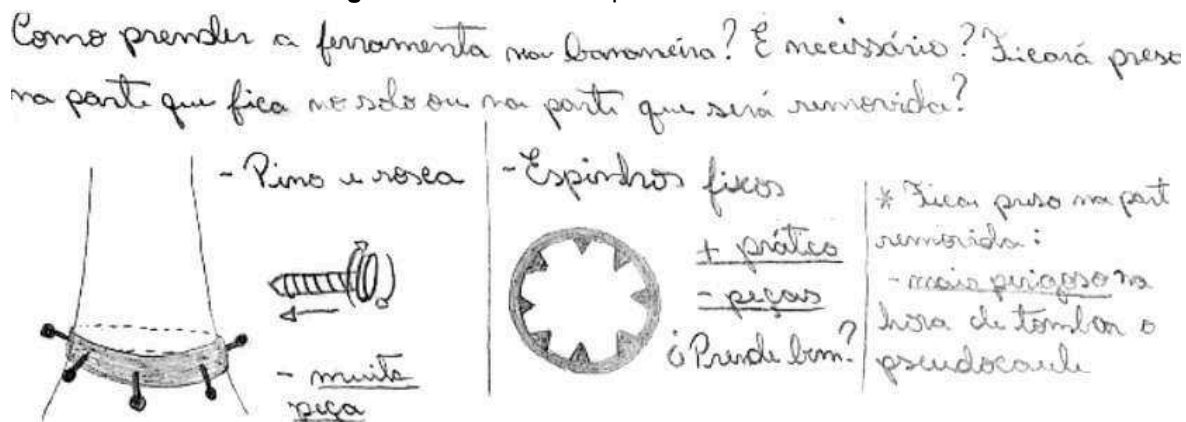 Como prender a ferramenta na bananeira? É necessário? Ficará preso
na parte que fica no solo ou na parte que será removida?
- Pino e rosca
- muita
peça
- Espinhos fixos
+ prático
- peças
¿Prende bem?
* Ficar preso na part
removida:
- mais perigoso na
hora de tombar o
pseudocaule